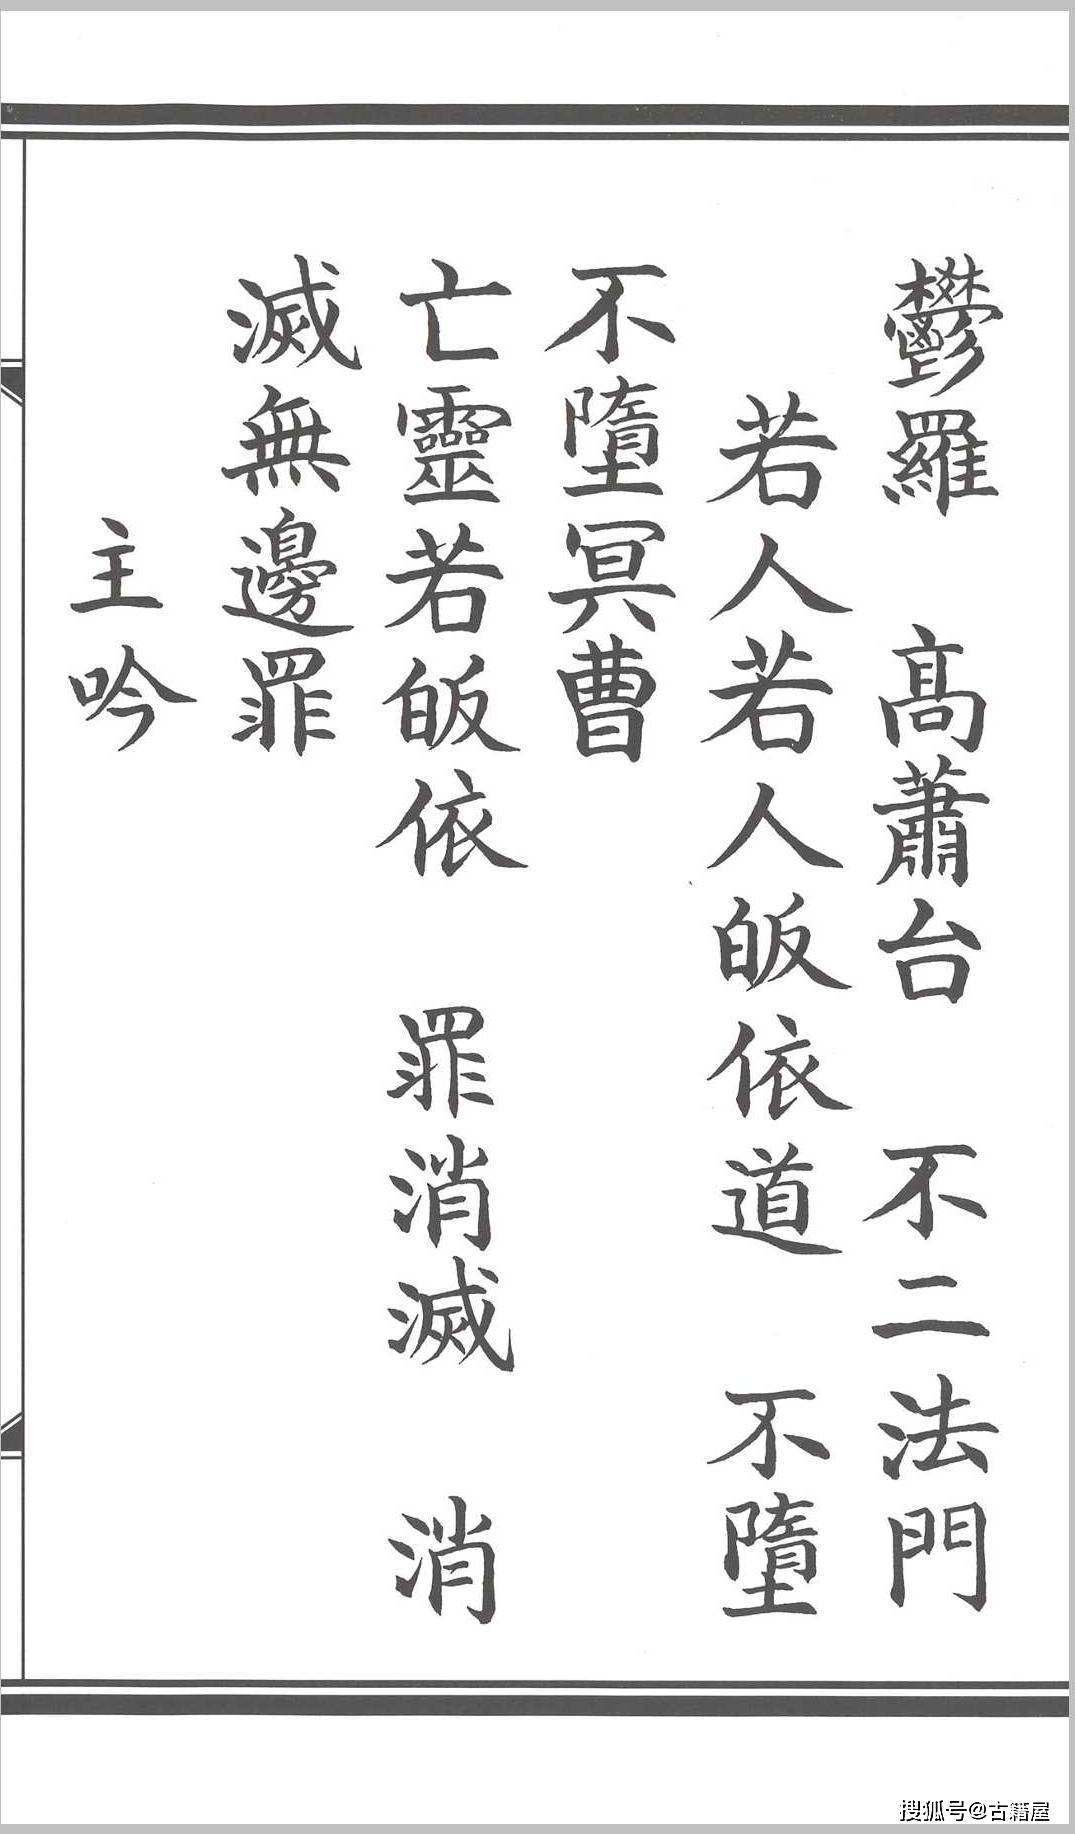 鬱羅　高蕭台　不二法門
若人若人皈依道　不墮
不墮冥曹
亡靈若皈依　罪消滅　消
滅無邊罪
主吟
搜狐号@古籍屋